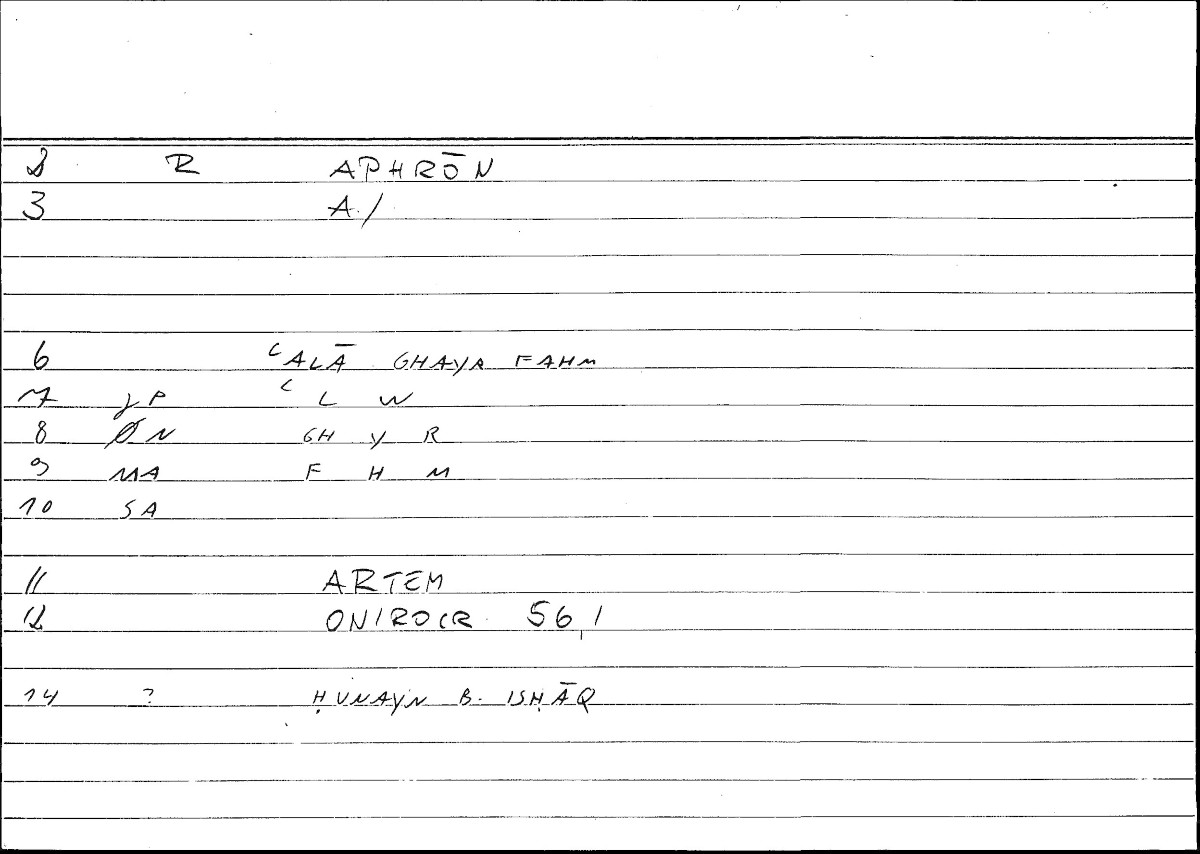 2 R APHRŌN
3 A./
6 ʿALĀ GHAYR FAHM
7 γP ʿ L W
8 ØN GH Y R
9 MA F H M
10 SA
11 ARTEM
12 ONIROCR. 56,1
14 ? ḤUNAYN B. ISḤĀQ